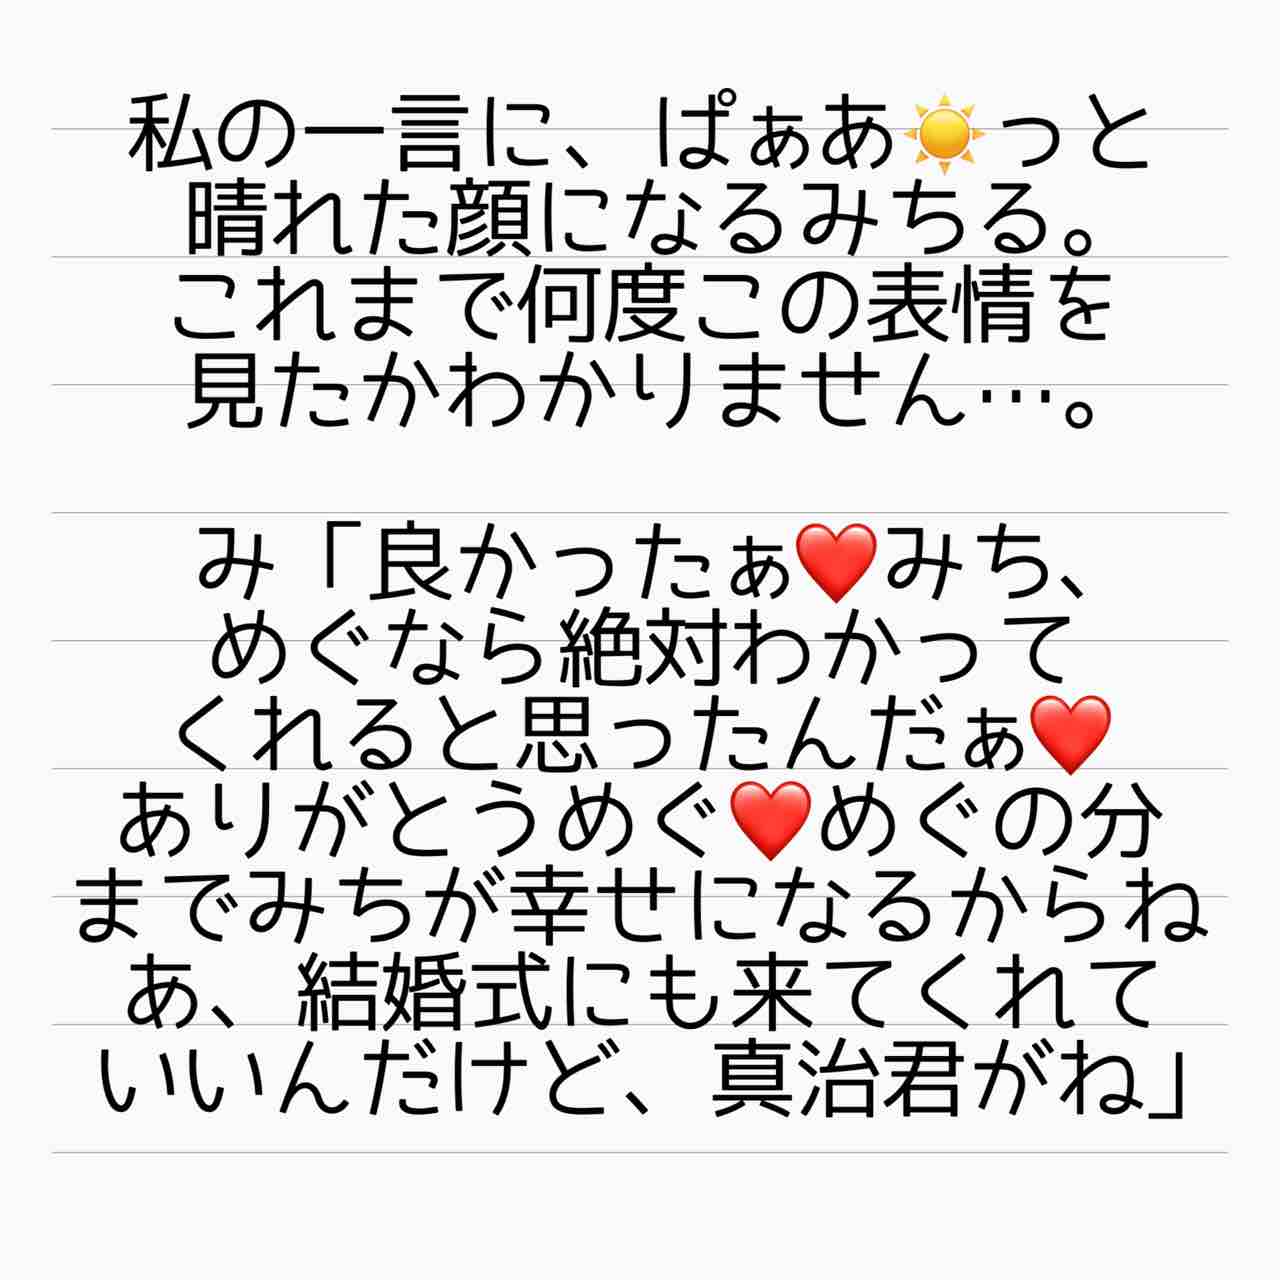 私の一言に、ぱぁあ☀️っと
晴れた顔になるみちる。
これまで何度この表情を
見たかわかりません…。
み「良かったぁ❤️みち、
めぐなら絶対わかって
くれると思ったんだぁ❤️
ありがとうめぐ❤️めぐの分
までみちが幸せになるからね
あ、結婚式にも来てくれて
いいんだけど、真治君がね」